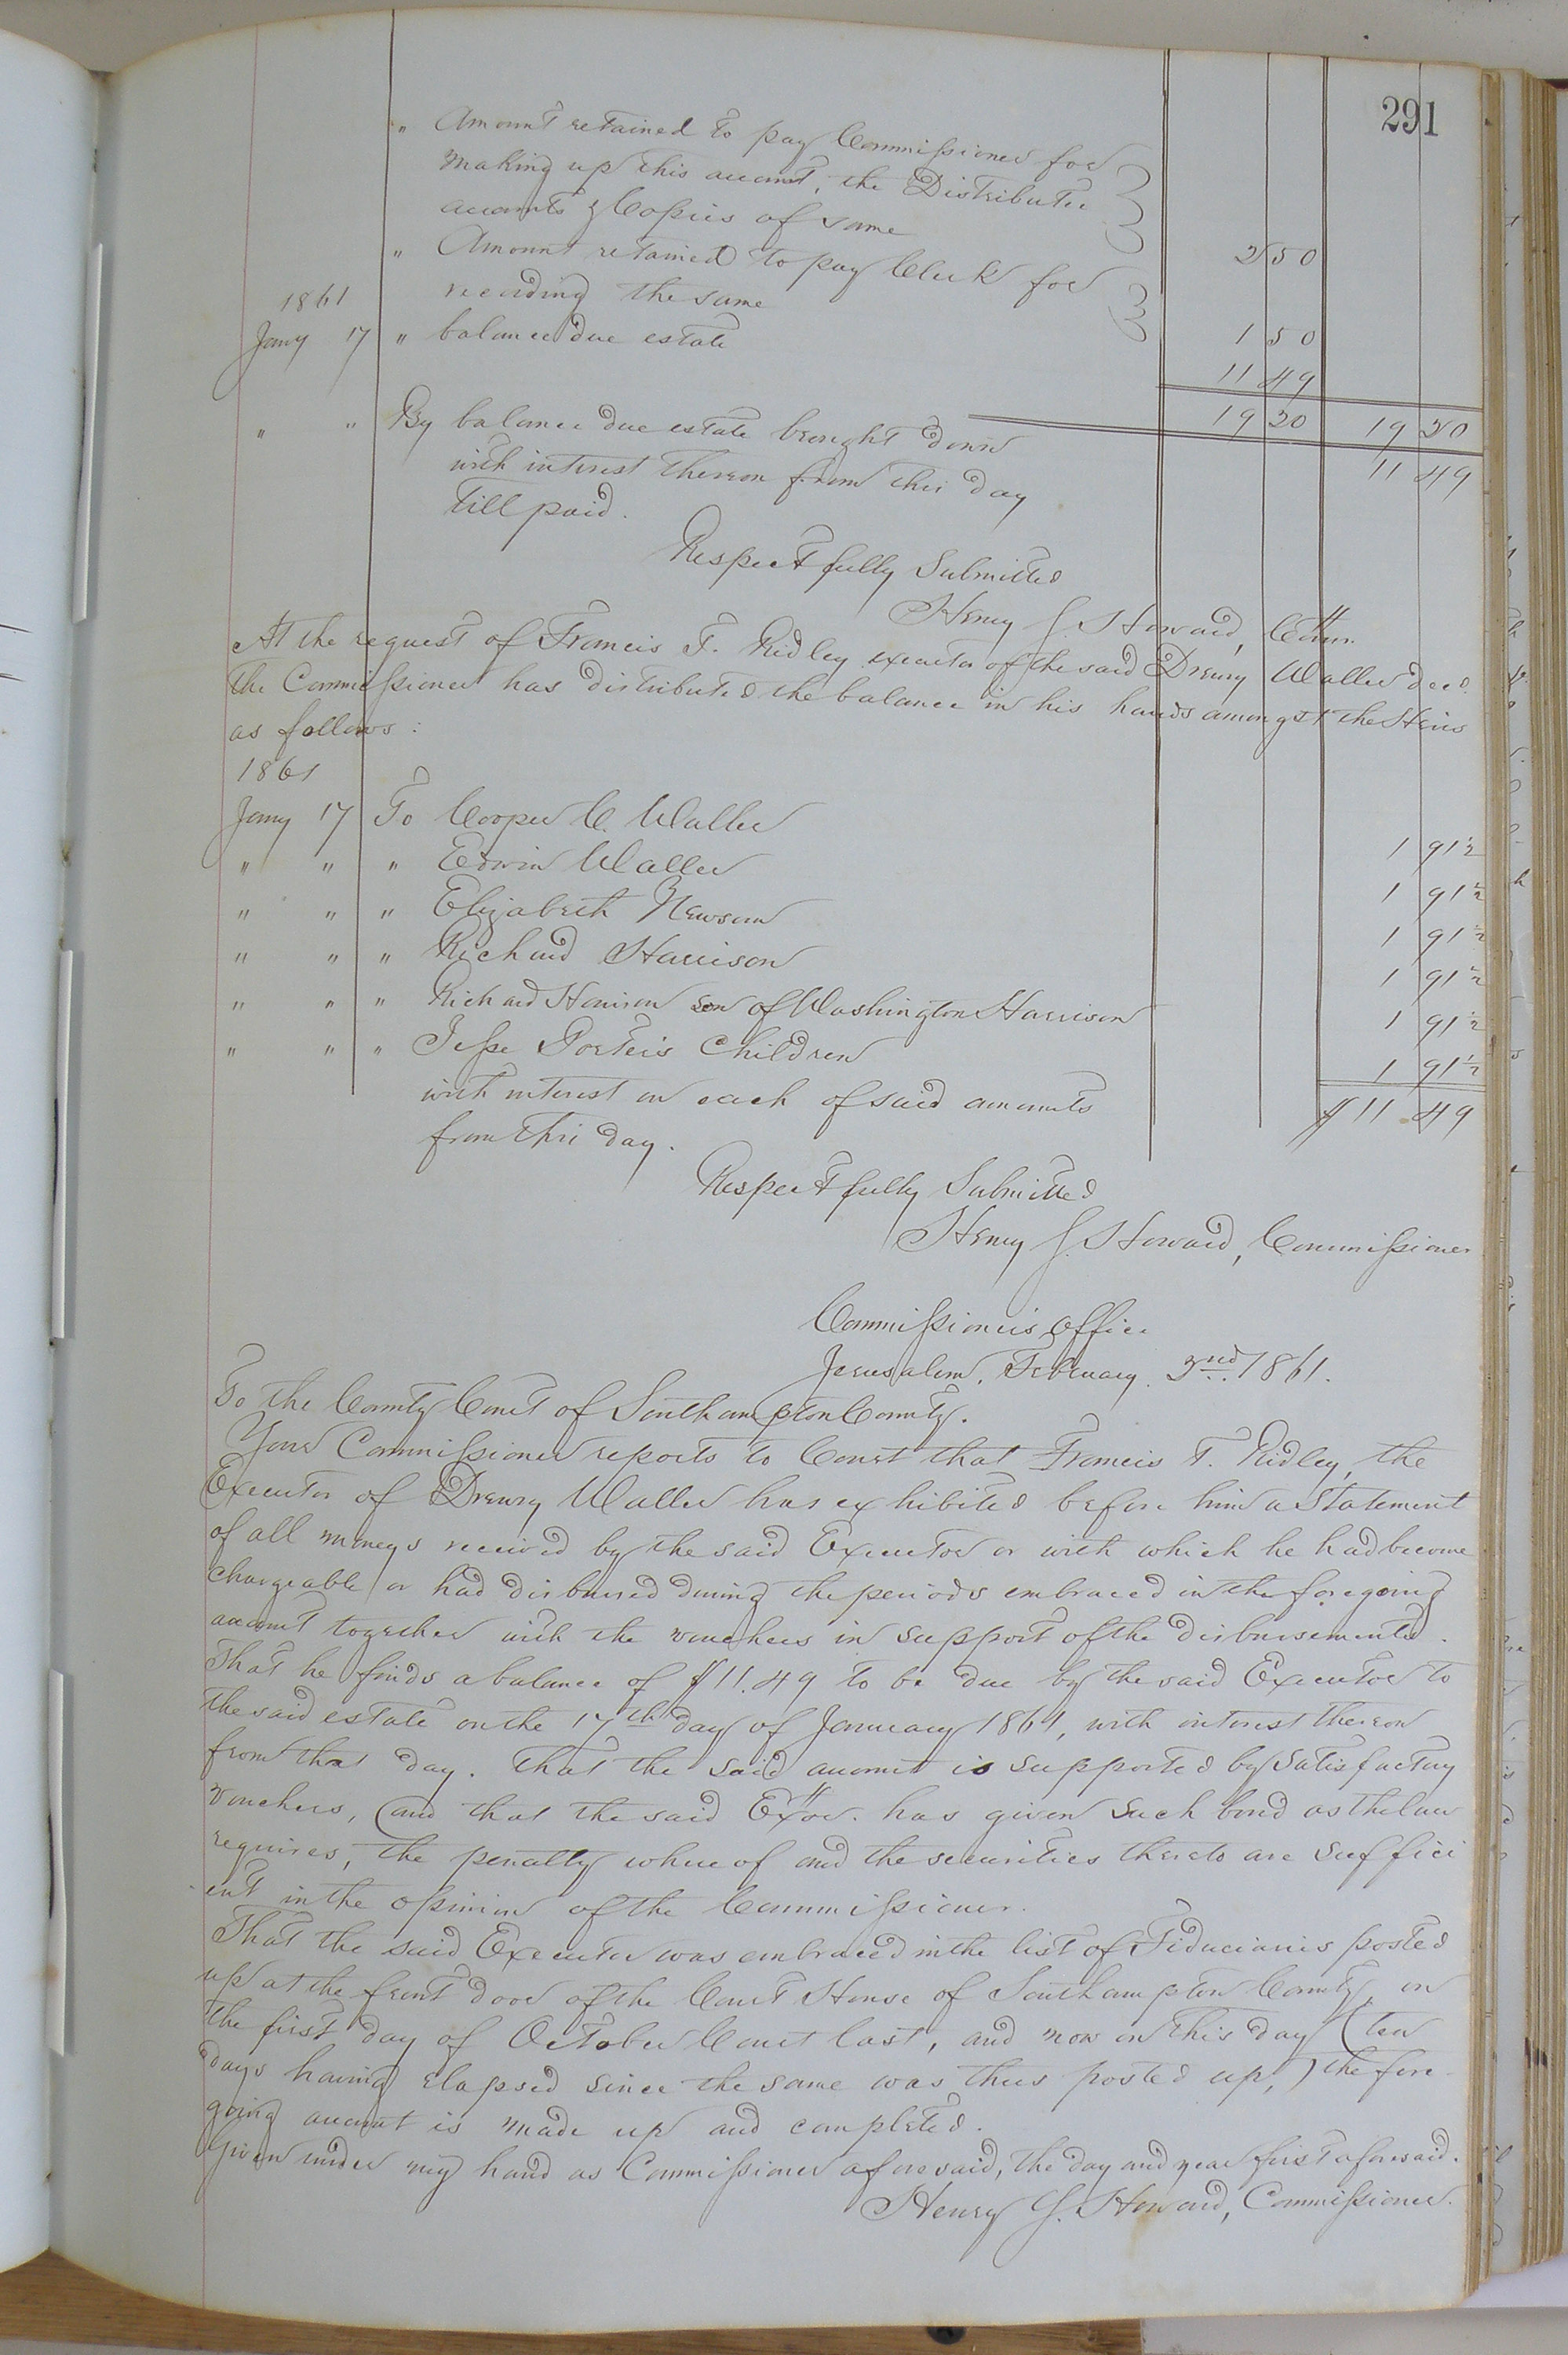 291
" Amount retained to pay Commissioner for
making up this account, the Distributee
accounts & Copies of same 2 50
" Amount retained to pay Clerk for
1861 recording the same 1 50
Jany 17 " balance due estate 11 49
19 20 19 20
" " By balance due estate brought down 11 49
with interest thereon from this day
till paid.
Respectfully Submitted
Henry J. Howard, Comr.
At the request of Francis T. Ridley executor of the said Drewry Waller decd.
the Commissioner has distributed the balance in his hands amongst the Heirs
as follows:
1861
Jany 17 To Cooper C. Waller 1 91½
" " " Edwin Waller 1 91½
" " " Elizabeth Newsom 1 91½
" " " Richard Harrison 1 91½
" " " Richard Harrison son of Washington Harrison 1 91½
" " " Jesse Porter's Children 1 91½
with interest on each of said amounts $11 49
from this day.
Respectfully Submitted
Henry J. Howard, Commissioner
Commissioner's Office
Jerusalem, February 2nd 1861.
To the County Court of Southampton County.
Your Commissioner reports to Court that Francis T. Ridley, the
Executor of Drewry Waller has exhibited before him a Statement
of all moneys received by the said Executor or with which he had become
chargeable or had disbursed during the periods embraced in the foregoing
account together with the vouchers in support of the disbursements.
That he finds a balance of $11.49 to be due by the said Executor to
the said estate on the 17th day of January 1861, with interest thereon
from that day. That the said account is supported by Satisfactory
vouchers, (and that the said Exor. has given such bond as the law
requires, the penalty whereof and the securities thereto are suffici
ent in the opinion of the Commissioner.
That the said Executor was embraced in the list of Fiduciaries posted
up at the front door of the Court House of Southampton County, on
the first day of October Court last, and now on this day (ten
days having elapsed since the same was thus posted up,) the fore
going account is made up and completed.
Given under my hand as Commissioner aforesaid, the day and year first aforesaid.
Henry J. Howard, Commissioner.